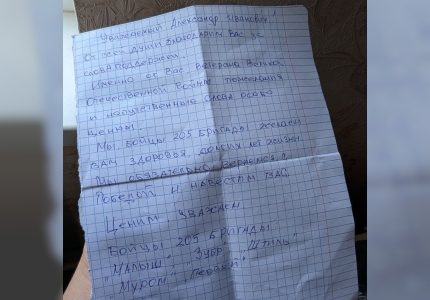 Уважаемый Александр Иванович!
От всей души благодарим Вас за
слова поддержки.
Именно от Вас Ветерана Великой
Отечественной Войны пожелания
и напутственные слова особо
ценны.
Мы, бойцы 205 бригады желаем
Вам здоровья, долгих лет жизни.
Мы обязательно вернемся с
Победой и навестим Вас.
Ценим, уважаем
Бойцы 205 бригады
"Малыш", "Зубр", "Штиль"
"Муром",